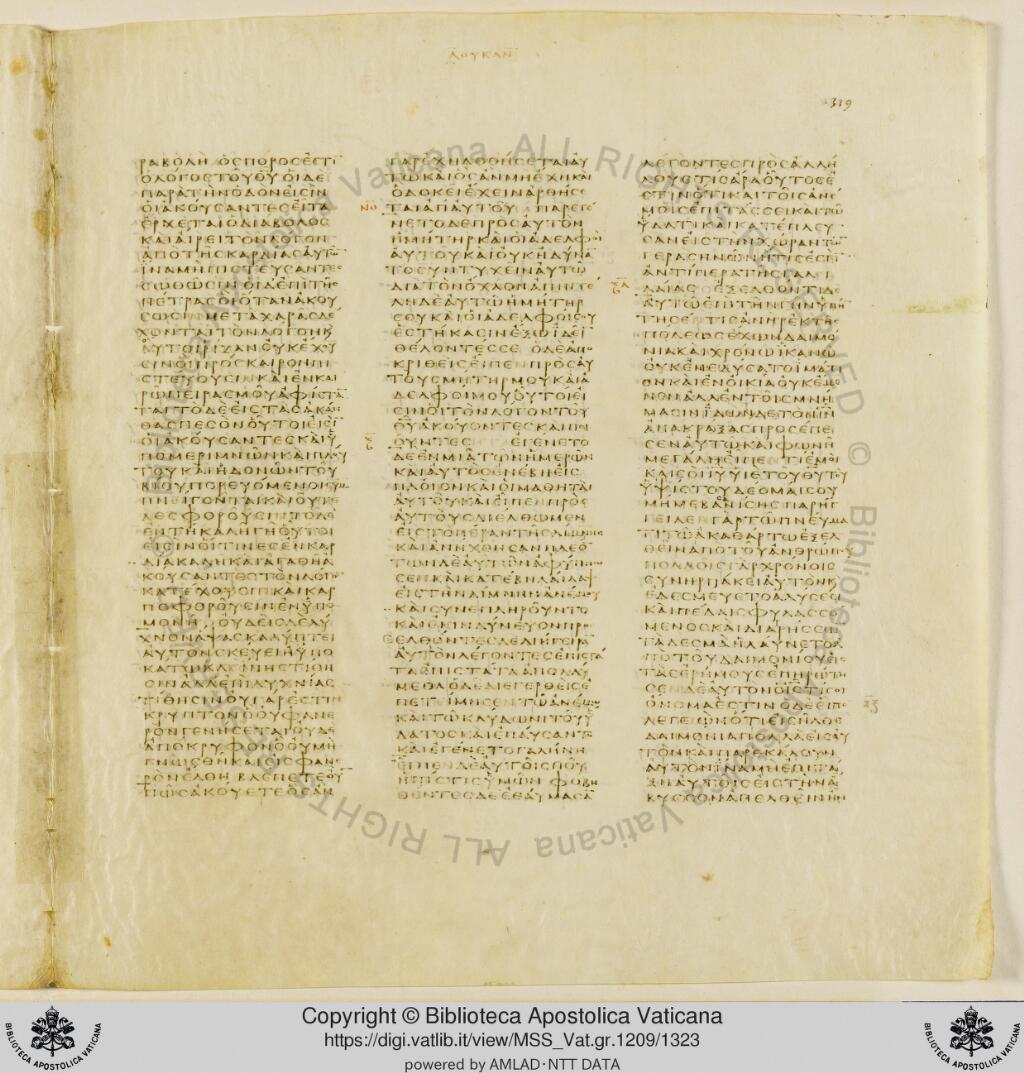 ΛΟΥΚΑΝ
319
ΡΑΒΟΛΗ ΟϹΠΟΡΟϹΕϹΤΙ
ΟΛΟΓΟϹΤΟΥΘΥ ΟΙΔΕ
ΠΑΡΑΤΗΝΟΔΟΝΕΙϹΙΝ
ΟΙΑΚΟΥϹΑΝΤΕϹΕΙΤΑ
ΕΡΧΕΤΑΙΟΔΙΑΒΟΛΟϹ
ΚΑΙΑΙΡΕΙΤΟΝΛΟΓΟΝ
ΑΠΟΤΗϹΚΑΡΔΙΑϹΑΥΤΩ
ΙΝΑΜΗΠΙϹΤΕΥϹΑΝΤΕϹ
ϹΩΘΩϹΙΝ ΟΙΔΕΕΠΙΤΗϹ
ΠΕΤΡΑϹΟΙΟΤΑΝΑΚΟΥ
ϹΩϹΙΝΜΕΤΑΧΑΡΑϹΔΕ
ΧΟΝΤΑΙΤΟΝΛΟΓΟΝΚ
ΑΥΤΟΙΡΙΖΑΝΟΥΚΕΧΟΥ
ϹΙΝΟΙΠΡΟϹΚΑΙΡΟΝΠΙ
ϹΤΕΥΟΥϹΙΝΚΑΙΕΝΚΑΙ
ΡΩΠΕΙΡΑϹΜΟΥΑΦΙϹΤΑ
ΤΑΙΤΟΔΕΕΙϹΤΑϹΑΚΑΝ
ΘΑϹΠΕϹΟΝΟΥΤΟΙΕΙϹΙ
ΟΙΑΚΟΥϹΑΝΤΕϹΚΑΙΥ
ΠΟΜΕΡΙΜΝΩΝΚΑΙΠΛΟΥ
ΤΟΥΚΑΙΗΔΟΝΩΝΤΟΥ
ΒΙΟΥΠΟΡΕΥΟΜΕΝΟΙϹΥΝ
ΠΝΕΙΓΟΝΤΑΙΚΑΙΟΥΤΕ
ΛΕϹΦΟΡΟΥϹΙΝΤΟΔΕ
ΕΝΤΗΚΑΛΗΓΗΟΥΤΟΙ
ΕΙϹΙΝΟΙΤΙΝΕϹΕΝΚΑΡ
ΔΙΑΚΑΛΗΚΑΙΑΓΑΘΗΑ
ΚΟΥϹΑΝΤΕϹΤΟΝΛΟΓΟ
ΚΑΤΕΧΟΥϹΙΝΚΑΙΚΑΡ
ΠΟΦΟΡΟΥϹΙΝΕΝΥΠΟ
ΜΟΝΗ ΟΥΔΕΙϹΔΕΛΥ
ΧΝΟΝΑΨΑϹΚΑΛΥΠΤΕΙ
ΑΥΤΟΝϹΚΕΥΕΙΗΥΠΟ
ΚΑΤΩΚΛΙΝΗϹΤΙΘΗ
ϹΙΝΑΛΛΕΠΙΛΥΧΝΙΑϹ
ΤΙΘΗϹΙΝΟΥΓΑΡΕϹΤΙΝ
ΚΡΥΠΤΟΝΟΟΥΦΑΝΕ
ΡΟΝΓΕΝΗϹΕΤΑΙΟΥΔΕ
ΑΠΟΚΡΥΦΟΝΟΟΥΜΗ
ΓΝΩϹΘΗΚΑΙΕΙϹΦΑΝΕ
ΡΟΝΕΛΘΗ ΒΛΕΠΕΤΕΟΥ
ΠΩϹΑΚΟΥΕΤΕΟϹΑΝ
ΓΑΡΕΧΗΔΟΘΗϹΕΤΑΙΑΥ
ΤΩΚΑΙΟϹΑΝΜΗΕΧΗΚΑΙ
ΟΔΟΚΕΙΕΧΕΙΝΑΡΘΗϹΕ
ΤΑΙΑΠΑΥΤΟΥ ΠΑΡΕΓΕ
ΝΕΤΟΔΕΠΡΟϹΑΥΤΟΝ
ΗΜΗΤΗΡΚΑΙΟΙΑΔΕΛΦΟΙ
ΑΥΤΟΥΚΑΙΟΥΚΗΔΥΝΑ
ΤΟϹΥΝΤΥΧΕΙΝΑΥΤΩ
ΔΙΑΤΟΝΟΧΛΟΝΑΠΗΓΓΕ
ΛΗΔΕΑΥΤΩΗΜΗΤΗΡ
ϹΟΥΚΑΙΟΙΑΔΕΛΦΟΙϹΟΥ
ΕϹΤΗΚΑϹΙΝΕΞΩΙΔΕΙ
ΘΕΛΟΝΤΕϹϹΕ ΟΔΕΑΠΟ
ΚΡΙΘΕΙϹΕΙΠΕΝΠΡΟϹΑΥ
ΤΟΥϹΜΗΤΗΡΜΟΥΚΑΙΑ
ΔΕΛΦΟΙΜΟΥΟΥΤΟΙΕΙ
ϹΙΝΟΙΤΟΝΛΟΓΟΝΤΟΥ
ΘΥΑΚΟΥΟΝΤΕϹΚΑΙΠΟΙ
ΟΥΝΤΕϹ ΕΓΕΝΕΤΟ
ΔΕΕΝΜΙΑΤΩΝΗΜΕΡΩΝ
ΚΑΙΑΥΤΟϹΕΝΕΒΗΕΙϹ
ΠΛΟΙΟΝΚΑΙΟΙΜΑΘΗΤΑΙ
ΑΥΤΟΥΚΑΙΕΙΠΕΝΠΡΟϹ
ΑΥΤΟΥϹΔΙΕΛΘΩΜΕΝ
ΕΙϹΤΟΠΕΡΑΝΤΗϹΛΙΜΝΗϹ
ΚΑΙΑΝΗΧΘΗϹΑΝΠΛΕΟ
ΤΩΝΔΕΑΥΤΩΝΑΦΥΠΝΩ
ϹΕΝΚΑΙΚΑΤΕΒΗΛΑΙΛΑΨ
ΕΙϹΤΗΝΛΙΜΝΗΝΑΝΕΜΟΥ
ΚΑΙϹΥΝΕΠΛΗΡΟΥΝΤΟ
ΚΑΙΕΚΙΝΔΥΝΕΥΟΝΠΡΟ
ϹΕΛΘΟΝΤΕϹΔΕΔΙΗΓΕΙΡΑ
ΑΥΤΟΝΛΕΓΟΝΤΕϹΕΠΙϹΤΑ
ΤΑΕΠΙϹΤΑΤΑΑΠΟΛΛΥ
ΜΕΘΑΟΔΕΔΙΕΓΕΡΘΕΙϹΕ
ΠΕΤΙΜΗϹΕΝΤΩΑΝΕΜΩ
ΚΑΙΤΩΚΛΥΔΩΝΙΤΟΥΥ
ΔΑΤΟϹΚΑΙΕΠΑΥϹΑΝΤΟ
ΚΑΙΕΓΕΝΕΤΟΓΑΛΗΝΗ
ΕΙΠΕΝΔΕΑΥΤΟΙϹΠΟΥ
ΗΠΙϹΤΙϹΥΜΩΝ ΦΟΒΗ
ΘΕΝΤΕϹΔΕΕΘΑΥΜΑϹΑ
ΛΕΓΟΝΤΕϹΠΡΟϹΑΛΛΗ
ΛΟΥϹΤΙϹΑΡΑΟΥΤΟϹΕ
ϹΤΙΝΟΤΙΚΑΙΤΟΙϹΑΝΕ
ΜΟΙϹΕΠΙΤΑϹϹΕΙΚΑΙΤΩ
ΥΔΑΤΙΚΑΙΚΑΤΕΠΛΕΥ
ϹΑΝΕΙϹΤΗΝΧΩΡΑΝΤΩ
ΓΕΡΑϹΗΝΩΝΗΤΙϹΕϹΤΙ
ΑΝΤΙΠΕΡΑΤΗϹΓΑΛΕΙ
ΛΑΙΑϹ ΕΞΕΛΘΟΝΤΙΔΕ
ΑΥΤΩΕΠΙΤΗΝΓΗΝΥΠΗ
ΤΗϹΕΝΤΙϹΑΝΗΡΕΚΤΗϹ
ΠΟΛΕΩϹΕΧΩΝΔΑΙΜΟ
ΝΙΑΚΑΙΧΡΟΝΩΙΚΑΝΩ
ΟΥΚΕΝΕΔΥϹΑΤΟΙΜΑΤΙ
ΟΝΚΑΙΕΝΟΙΚΙΑΟΥΚΕΜΕ
ΝΕΝΑΛΛΕΝΤΟΙϹΜΝΗ
ΜΑϹΙΝΙΔΩΝΔΕΤΟΝΙΝ
ΑΝΑΚΡΑΞΑϹΠΡΟϹΕΠΕ
ϹΕΝΑΥΤΩΚΑΙΦΩΝΗ
ΜΕΓΑΛΗΕΙΠΕΝΤΙΕΜΟΙ
ΚΑΙϹΟΙΙΥΥΙΕΤΟΥΘΥΤΟΥ
ΥΨΙϹΤΟΥΔΕΟΜΑΙϹΟΥ
ΜΗΜΕΒΑϹΑΝΙϹΗϹΠΑΡΗΓ
ΓΕΙΛΕΝΓΑΡΤΩΠΝΕΥΜΑ
ΤΙΤΩΑΚΑΘΑΡΤΩΕΞΕΛ
ΘΕΙΝΑΠΟΤΟΥΑΝΘΡΩΠΟΥ
ΠΟΛΛΟΙϹΓΑΡΧΡΟΝΟΙϹ
ϹΥΝΗΡΠΑΚΕΙΑΥΤΟΝΚ
ΕΔΕϹΜΕΥΕΤΟΑΛΥϹΕϹΙ
ΚΑΙΠΕΔΑΙϹΦΥΛΑϹϹΟ
ΜΕΝΟϹΚΑΙΔΙΑΡΗϹϹΩ
ΤΑΔΕϹΜΑΗΛΑΥΝΕΤΟΑ
ΠΟΤΟΥΔΑΙΜΟΝΙΟΥΕΙϹ
ΤΑϹΕΡΗΜΟΥϹΕΠΗΡΩΤΗ
ϹΕΝΔΕΑΥΤΟΝΟΙϹΤΙϹΟΙ
ΟΝΟΜΑΕϹΤΙΝΟΔΕΕΙΠΕ
ΛΕΓΕΙΩΝΟΤΙΕΙϹΗΛΘΕ
ΔΑΙΜΟΝΙΑΠΟΛΛΑΕΙϹΑΥ
ΤΟΝΚΑΙΠΑΡΕΚΑΛΟΥΝ
ΑΥΤΟΝΙΝΑΜΗΕΠΙΤΑ
ΞΗΑΥΤΟΙϹΕΙϹΤΗΝΑ
ΒΥϹϹΟΝΑΠΕΛΘΕΙΝΗΝ
Copyright © Biblioteca Apostolica Vaticana
https://digi.vatlib.it/view/MSS_Vat.gr.1209/1323
powered by AMLAD·NTT DATA
BIBLIOTECA APOSTOLICA VATICANA
BIBLIOTECA APOSTOLICA VATICANA